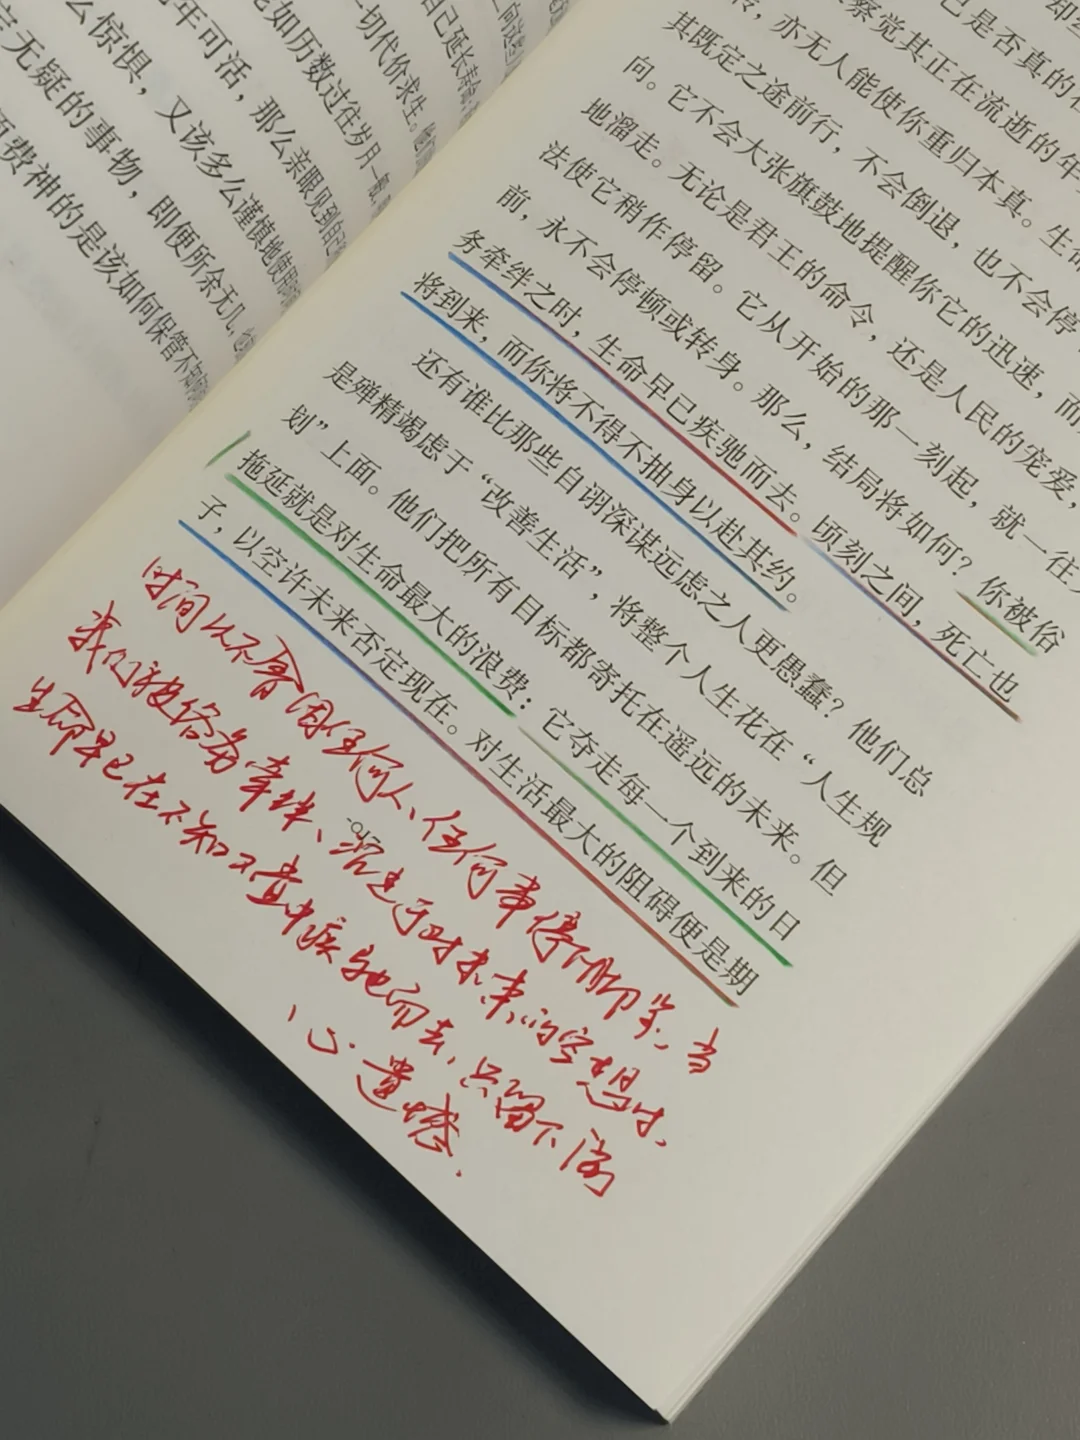 向达到
自己延长寿命，
一切代价求生。
如历数过往岁月一
年可活，那么亲眼见到自己
么惊惧，又该多么谨慎地使用
无疑的事物，即便所余无几，
费神的是该如何保管不知
己是否真的在
察觉其正在流逝的年
转，亦无人能使你重归本真。生命
其既定之途前行，不会倒退，也不会停
向。它不会大张旗鼓地提醒你它的迅速，而
地溜走。无论是君王的命令，还是人民的宠爱，
法使它稍作停留。它从开始的那一刻起，就一往
前，永不会停顿或转身。那么，结局将如何？你被俗
务牵绊之时，生命早已疾驰而去。顷刻之间，死亡也
将到来，而你将不得不抽身以赴其约。
还有谁比那些自诩深谋远虑之人更愚蠢？他们总
是殚精竭虑于“改善生活”，将整个人生花在“人生规
划”上面。他们把所有目标都寄托在遥远的未来。但
拖延就是对生命最大的浪费：它夺走每一个到来的日
子，以空许未来否定现在。对生活最大的阻碍便是期
时间从不会因任何人、任何事停下脚步，当
我们被俗务牵绊、沉迷于对未来的空想时，
生命早已在不知不觉中疾驰而去，只留下满
心遗憾.